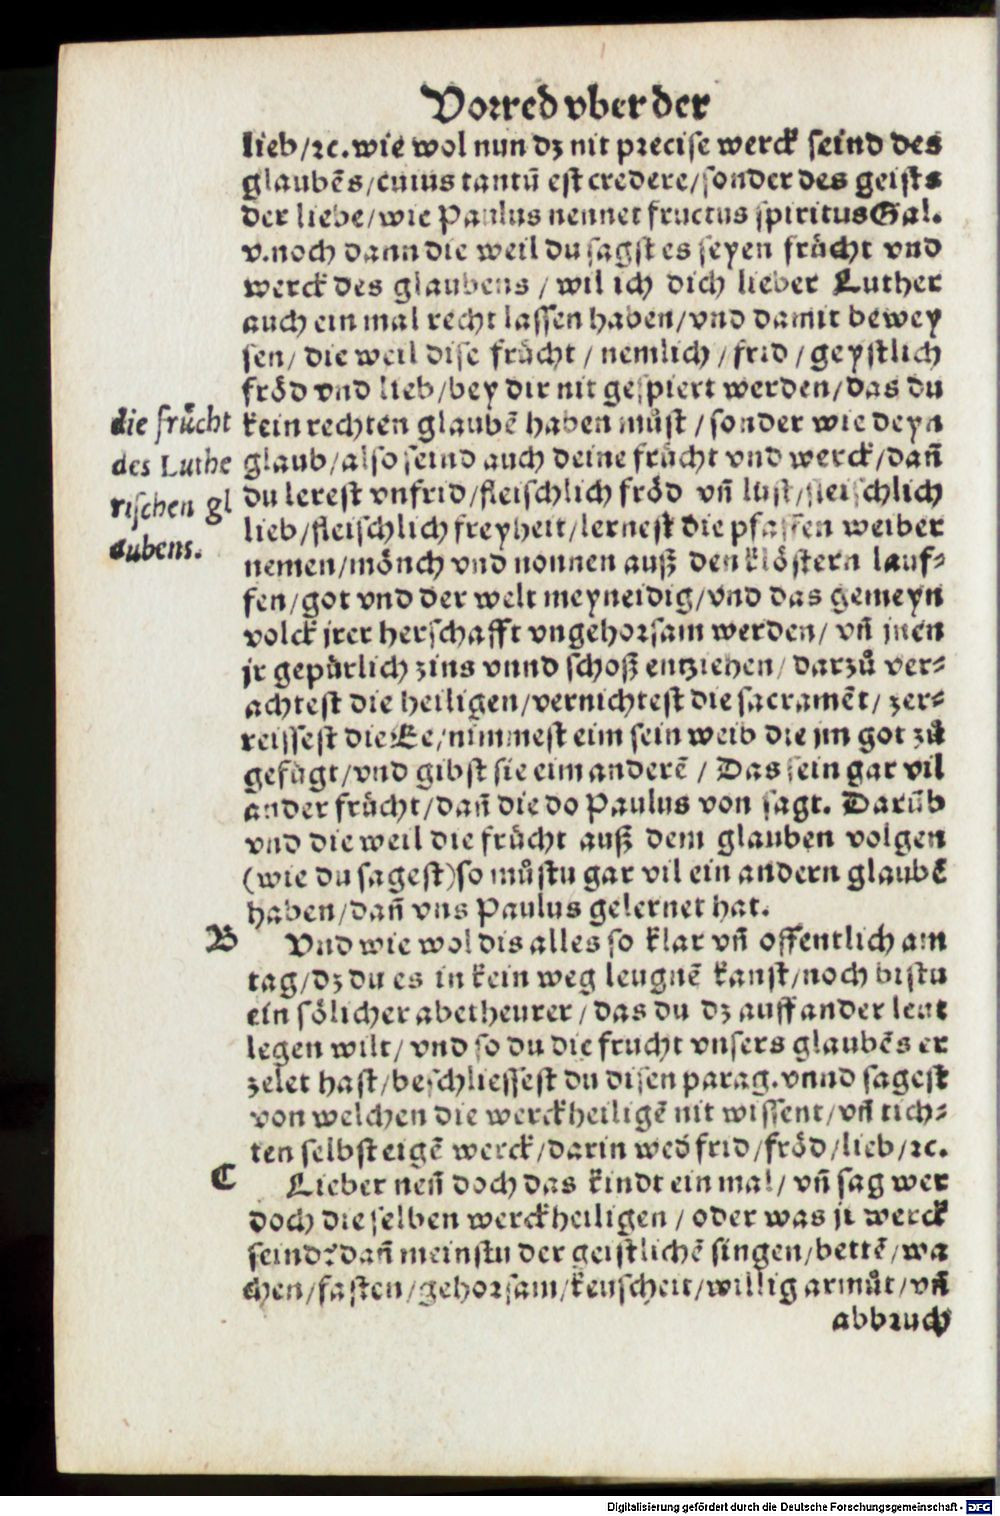 Vorred vber der
lieb/ꝛc. wie wol nun dz nit precise werck seind des
glaubēs/cuius tantū est credere/sonder des geists
der liebe/wie Paulus nennet fructus spiritus Gal.
v. noch dann die weil du sagst es seyen frücht vnd
werck des glaubens / wil ich dich lieber Luther
auch ein mal recht lassen haben/vnd damit bewey
sen/ die weil dise frücht / nemlich / frid / geystlich
fröd vnd lieb/bey dir nit gespiert werden/das du
kein rechten glaubē haben můst / sonder wie deyn
glaub/also seind auch deine frücht vnd werck/dañ
du lerest vnfrid/fleischlich fröd vñ lust/fleischlich
lieb/fleischlich freyheit/lernest die pfaffen weiber
nemen/mönch vnd nonnen auß den klöstern lauf⸗
fen/got vnd der welt meyneidig/vnd das gemeyn
volck jrer herschafft vngehorsam werden/ vñ jnen
jr gepürlich zins vnnd schoß entziehen/ darzů ver⸗
achtest die heiligen/vernichtest die sacramēt/ zer⸗
reissest die Ee/nimmest eim sein weib die jm got zů
gefügt/vnd gibst sie eim anderē / Das sein gar vil
ander frücht/dañ die do Paulus von sagt. Darūb
vnd die weil die frücht auß dem glauben volgen
(wie du sagest)so můstu gar vil ein andern glaubē
haben/dañ vns Paulus gelernet hat.
die frücht
des Luthe
rischen gl
aubens.
B Vnd wie wol dis alles so klar vñ offentlich am
tag/dz du es in kein weg leugnē kanst/noch bistu
ein sölicher abetheurer/das du dz auff ander leut
legen wilt/ vnd so du die frucht vnsers glaubēs er
zelet hast/beschliessest du disen parag. vnnd sagest
von welchen die werckheiligē nit wissent/vñ tich⸗
ten selbst eigē werck/darin wed frid/fröd/lieb/ꝛc.
C Lieber neñ doch das kindt ein mal/ vñ sag wer
doch die selben werckheiligen / oder was jr werck
seind? dañ meinstu der geistlichē singen/bettē/wa
chen/fasten/gehorsam/keuscheit/willig armůt/vñ
abbruch
Digitalisierung gefördert durch die Deutsche Forschungsgemeinschaft - DFG